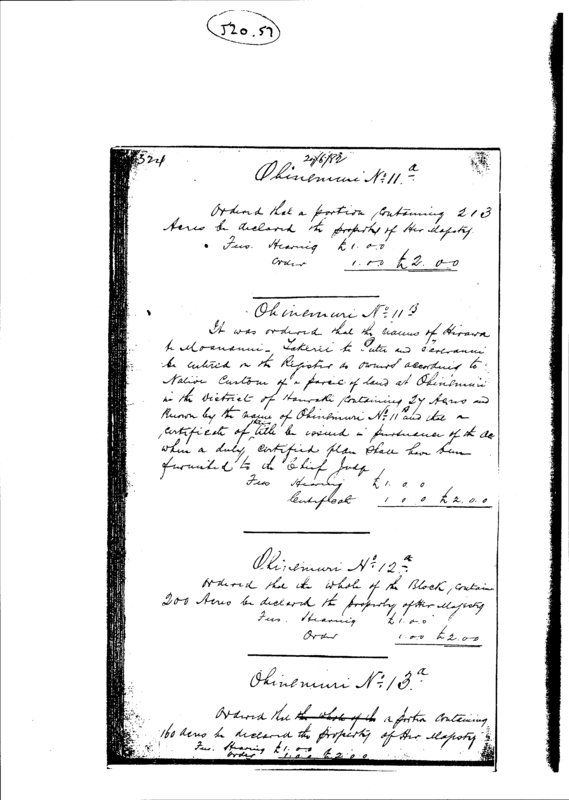 520.57
324
Ohinemuri No 11 a
Ordered that a portion containing 213
Acres be declared the property of Her Majesty
Fees. Hearing £1.0.0
Order 1.0.0 £2.0.0
Ohinemuri No 11 B
It was ordered that the names of Hirawa
te Moananui - te and
be entered on the Register as owners according to
Native Custom of a parcel of land at Ohinemuri
in the District of Hauraki containing 27 Acres and
known by the name of Ohinemuri No 11 B and that a
certificate of their title be issued in pursuance of the Act
when a duly certified plan shall have been
furnished to the Chief Judge
Fees Hearing £1.0.0
Certificate 1.0.0 £2.0.0
Ohinemuri No 12 a
Ordered that the whole of the Block, containing
200 Acres be declared the property of Her Majesty
Fees. Hearing £1.0.0
Order 1.0.0 £2.0.0
Ohinemuri No 13 a
Ordered that the whole of the a portion containing
160 acres be declared the property of Her Majesty
Fees. Hearing £1.0.0
Order 1.0.0 £2.0.0